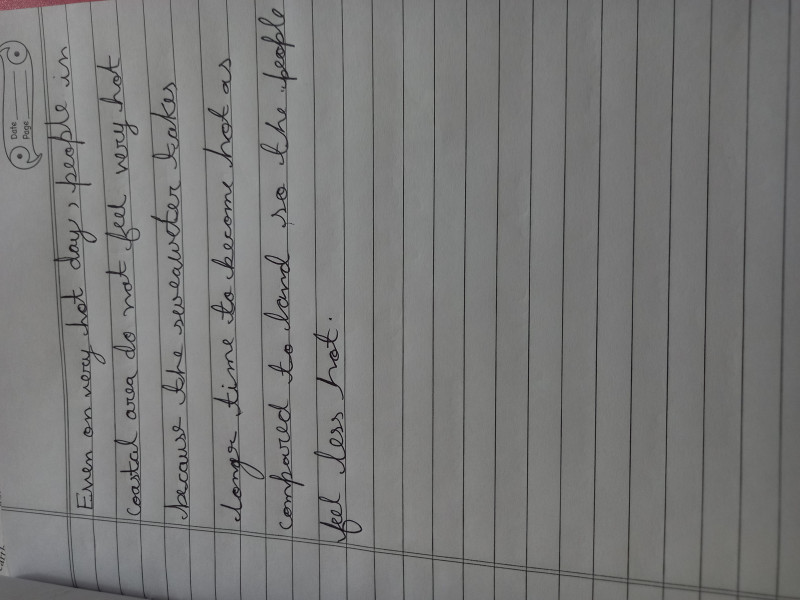 Date
Page
Even on very hot day, people in
coastal area do not feel very hot
because the seawater takes
longer time to become hot as
compared to land so the people
feel less hot.